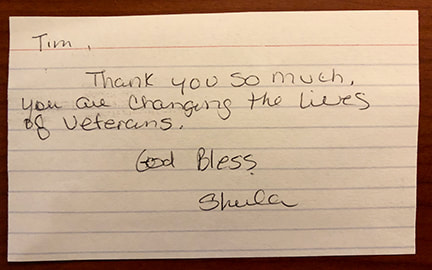 Tim,
Thank you so much.
you are changing the lives
of veterans.
God Bless
Sheila